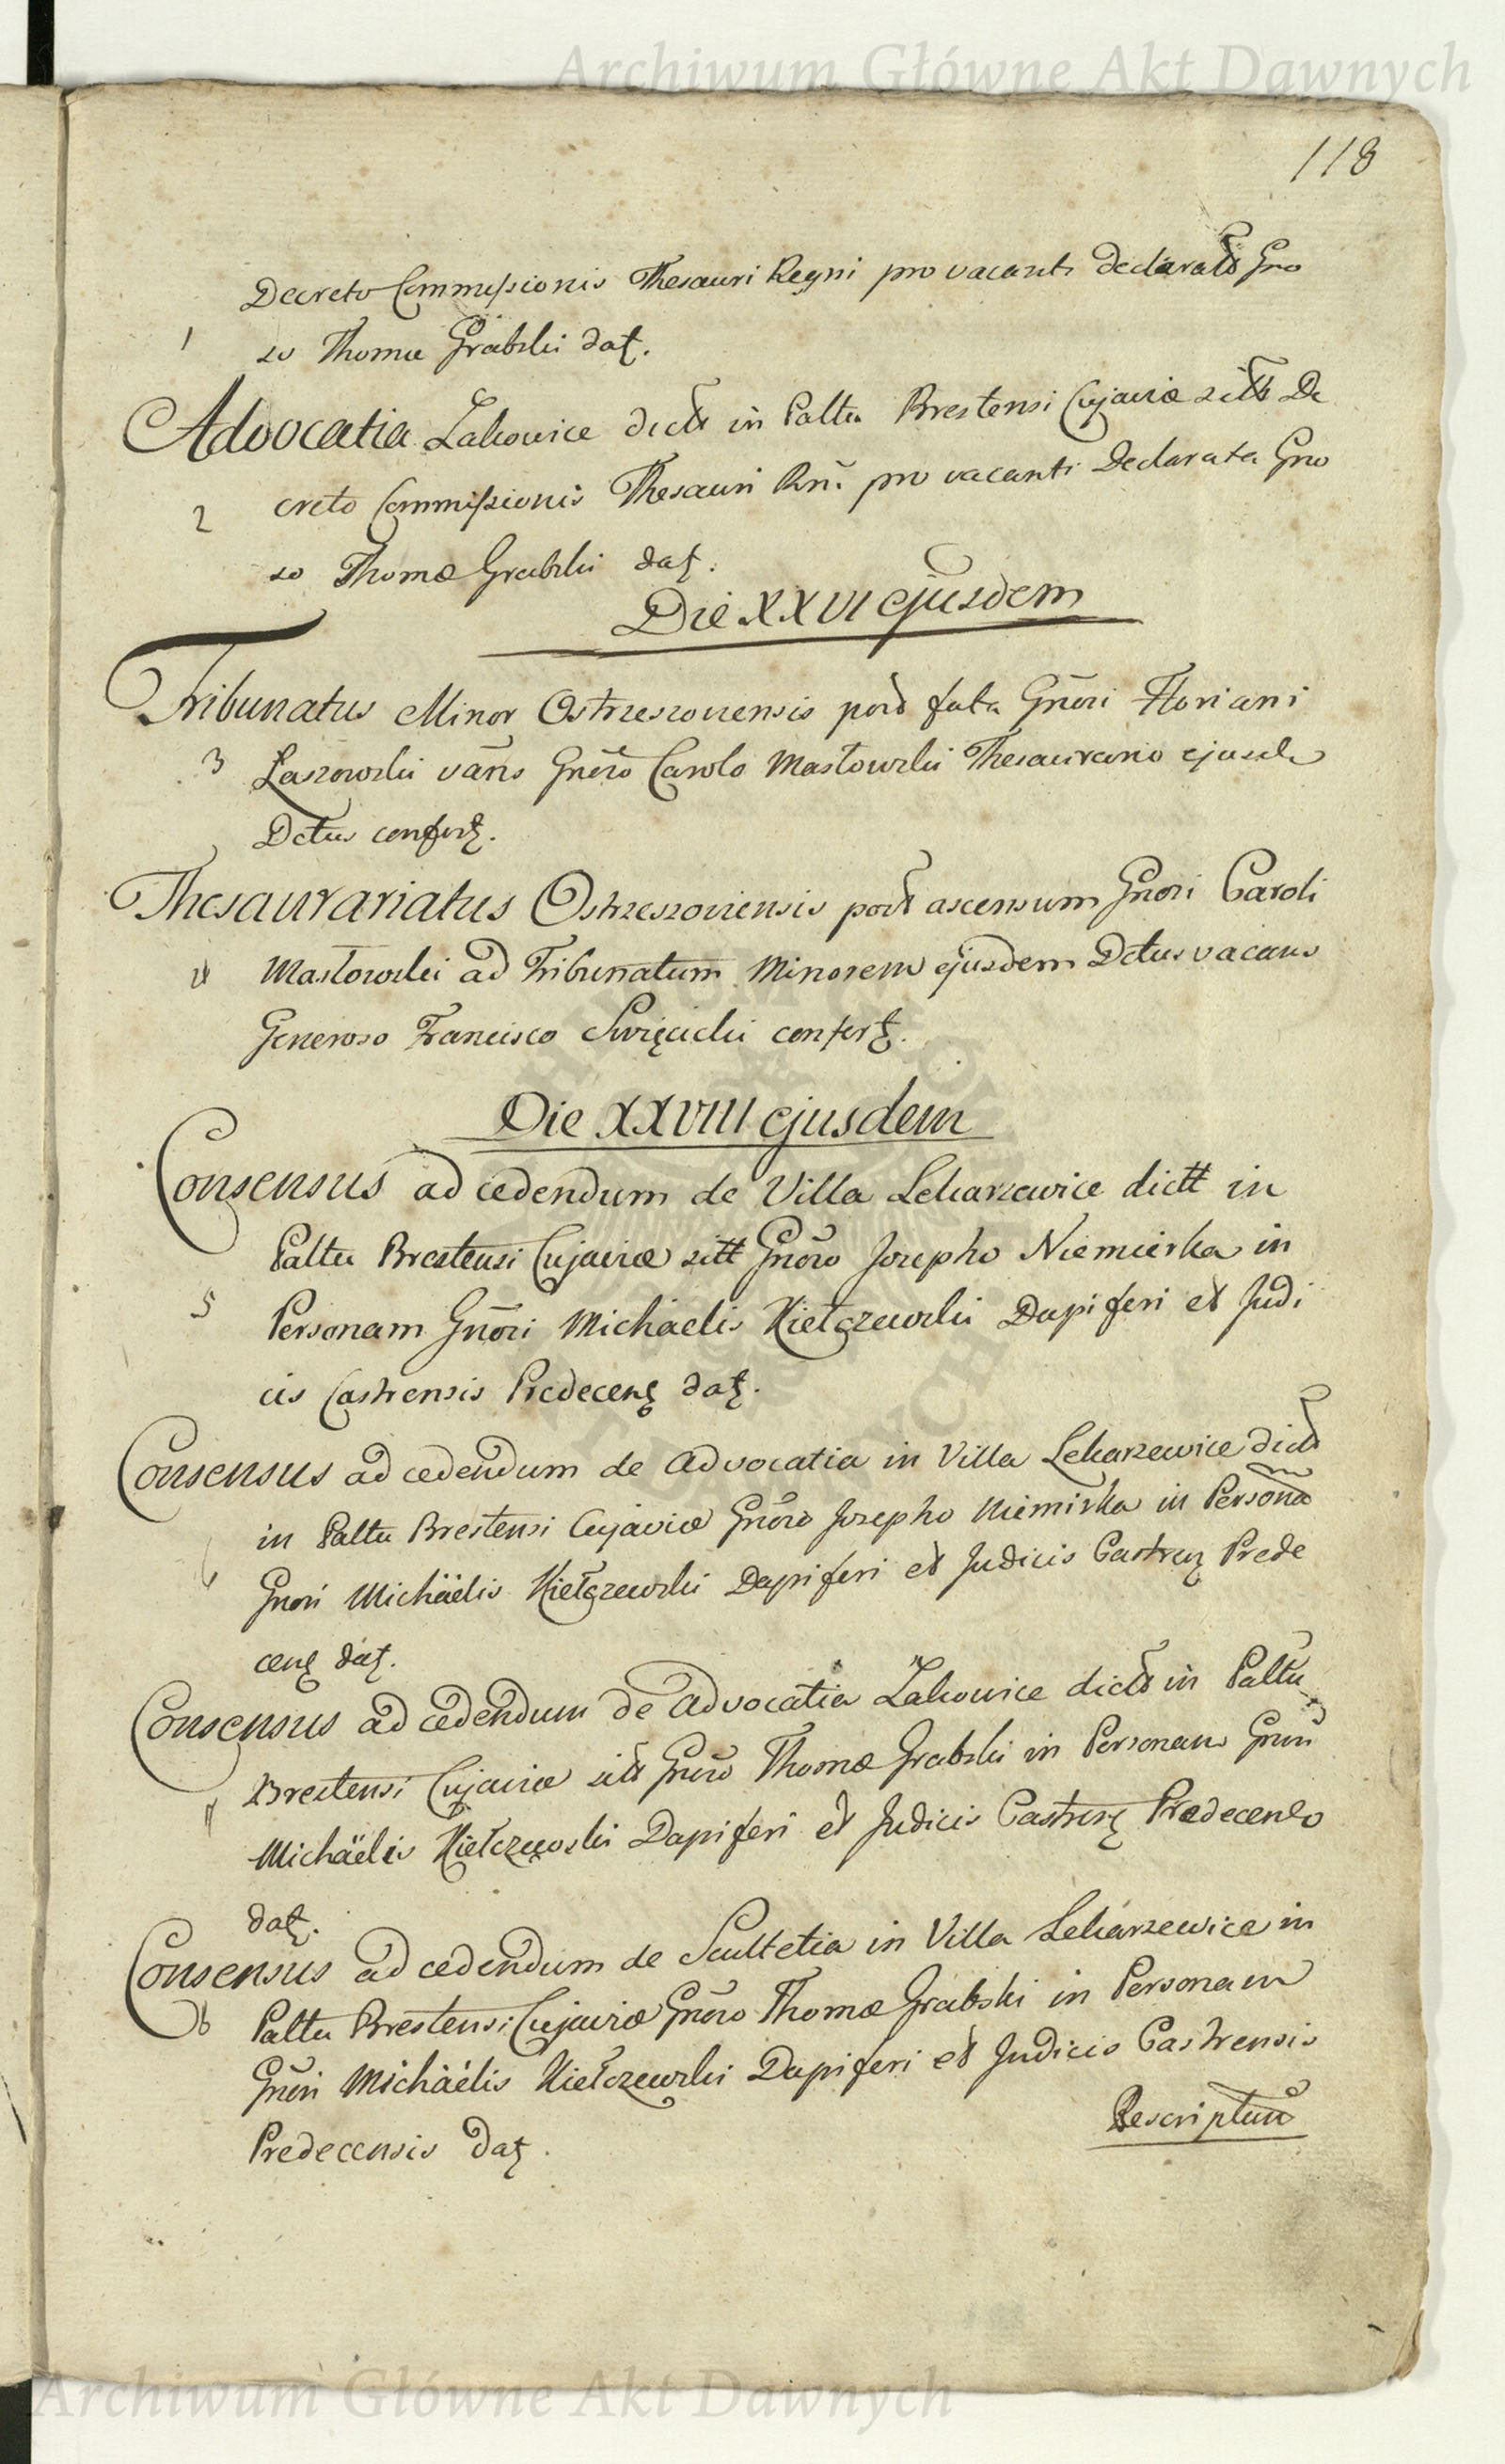 Archiwum Główne Akt Dawnych
118
Decreto Commissionis Thesauri Regni pro vacanti declarats Gno
1 so Thomæ Grabski datʒ.
Advocatia Zakowice dicts in Palttu Brestensi Cujaviæ sitts De
2 creto Commissionis Thesauri Rni pro vacanti Declarata Gno
so Thomæ Grabski datʒ.
Die XXVI ejusdem
Tribunatus Minor Ostrzeszoviensis post fata Gnōri Floriani
3 Łaszowski vāns Gnōro Carolo Masłowski Thesaurario ejusd
Dctus confertʒ.
Thesaurariatus Ostrzeszoviensis post ascensum Gnōri Caroli
4 Masłowski ad Tribunatum Minorem ejusdem Dctus vacans
Generoso Francisco Swięcicki confertʒ.
Die XXVIII ejusdem
Consensus ad cedendum de Villa Lekarzewice dictt in
Palttu Brestensi Cujaviæ sitt Gnōro Josepho Niemierka in
5 Personam Gnōri Michäelis Kiełczewski Dapiferi et Judi
cis Castrensis Predecenʒ datʒ.
Consensus ad cedendum de Advocatia in Villa Lekarzewice dicts
in Palttu Brestensi Cujaviæ Gnōro Josepho Niemirka in Personā
6 Gnōri Michäelis Kiełczewski Dapiferi et Judicis Castrenʒ Prede
cenʒ datʒ.
Consensus ad cedendum de Advocatia Zakowice dicts in Palttu
7 Brestensi Cujaviæ sits Gnōro Thomæ Grabski in Personam Gnōri
Michäelis Kiełczewski Dapiferi et Judicis Castrenʒ Predecens
datʒ.
Consensus ad cedendum de Scultetia in Villa Lekarzewice in
8 Palttu Brestensi Cujaviæ Gnōro Thomæ Grabski in Personam
Gnōri Michäelis Kiełczewski Dapiferi et Judicis Castrensis
Predecensis datʒ.
Rescriptum
Archiwum Główne Akt Dawnych